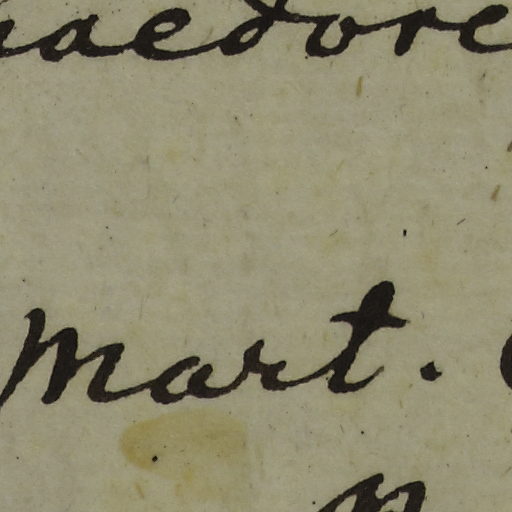 aedore
Mart.